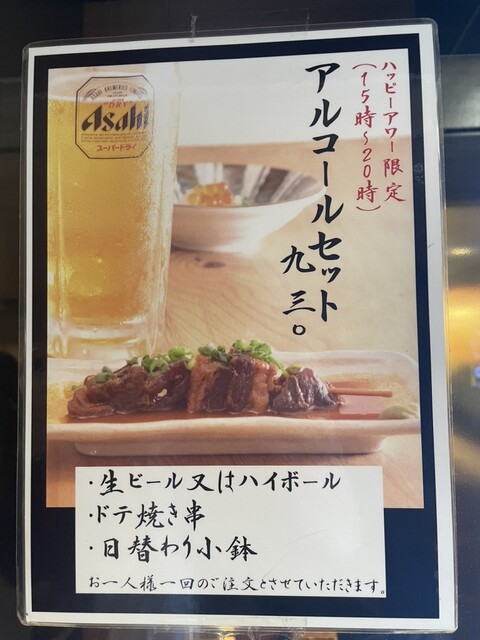 ハッピーアワー限定
(15時~20時)
アルコールセット
九三〇
Asahi
スーパードライ
・生ビール又はハイボール
・ドテ焼き串
・日替わり小鉢
お一人様一回のご注文とさせていただきます。